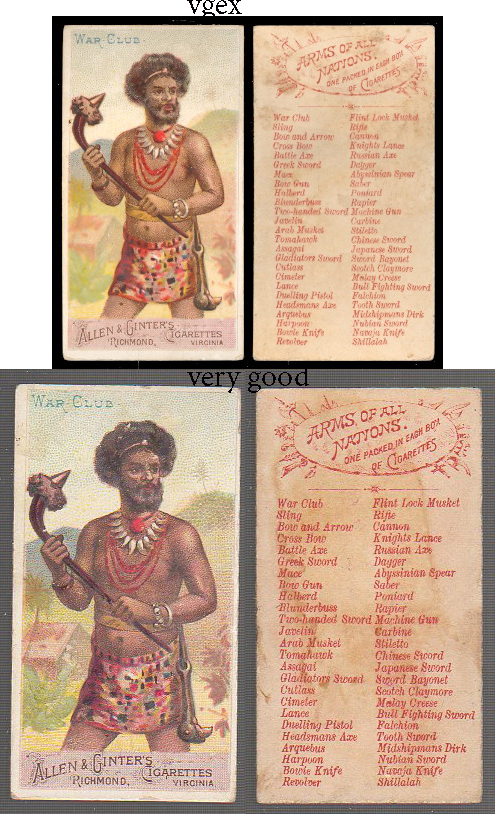 vgex
WAR CLUB.
ALLEN & GINTER'S
CIGARETTES
RICHMOND, VIRGINIA
ARMS OF ALL
NATIONS.
ONE PACKED IN EACH BOX
OF CIGARETTES
War Club Flint Lock Musket
Sling Rifle
Bow and Arrow Cannon
Cross Bow Knights Lance
Battle Axe Russian Axe
Greek Sword Dagger
Mace Abyssinian Spear
Bow Gun Saber
Halberd Poniard
Blunderbuss Rapier
Two-handed Sword Machine Gun
Javelin Carbine
Arab Musket Stiletto
Tomahawk Chinese Sword
Assagai Japanese Sword
Gladiators Sword Sword Bayonet
Cutlass Scotch Claymore
Cimeter Malay Creese
Lance Bull Fighting Sword
Duelling Pistol Falchion
Headsmans Axe Tooth Sword
Arquebus Midshipmans Dirk
Harpoon Nubian Sword
Bowie Knife Navaja Knife
Revolver Shillalah
very good
WAR CLUB.
ALLEN & GINTER'S
CIGARETTES
RICHMOND, VIRGINIA
ARMS OF ALL
NATIONS.
ONE PACKED IN EACH BOX
OF CIGARETTES
War Club Flint Lock Musket
Sling Rifle
Bow and Arrow Cannon
Cross Bow Knights Lance
Battle Axe Russian Axe
Greek Sword Dagger
Mace Abyssinian Spear
Bow Gun Saber
Halberd Poniard
Blunderbuss Rapier
Two-handed Sword Machine Gun
Javelin Carbine
Arab Musket Stiletto
Tomahawk Chinese Sword
Assagai Japanese Sword
Gladiators Sword Sword Bayonet
Cutlass Scotch Claymore
Cimeter Malay Creese
Lance Bull Fighting Sword
Duelling Pistol Falchion
Headsmans Axe Tooth Sword
Arquebus Midshipmans Dirk
Harpoon Nubian Sword
Bowie Knife Navaja Knife
Revolver Shillalah